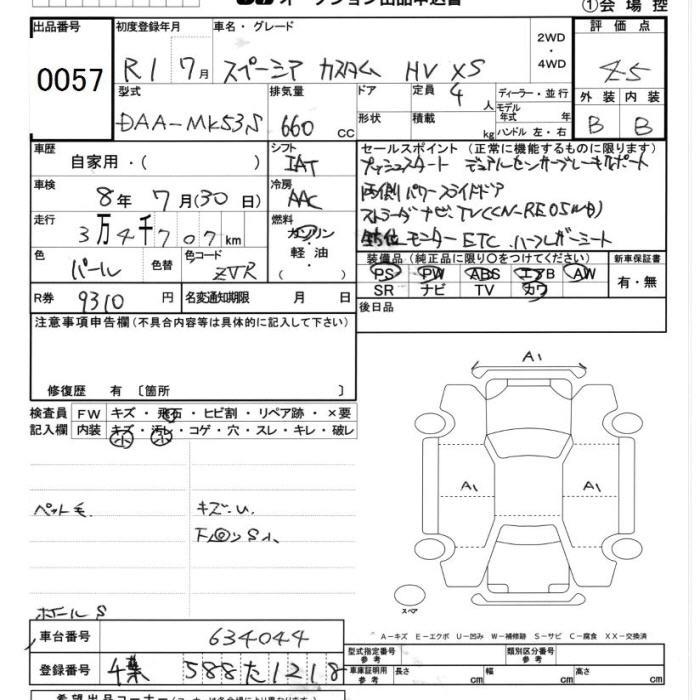 オークション出品申込書
①会場控
出品番号
0057
初度登録年月
R1 7月
車名・グレード
スペーシア カスタム HV XS
2WD
・
4WD
評価点
4.5
外装 内装
B B
型式
DAA-MK53S
排気量
660 cc
ドア
形状
定員 4 人
積載 kg
ディーラー・並行
モデル年式 年
ハンドル 左・右
車歴
自家用・( )
シフト
IAT
セールスポイント (正常に機能するものに限ります)
プッシュスタート デュアルセンサーブレーキサポート
両側パワースライドドア
ストラーダナビTV(CN-RE05WD)
全方位モニター ETC ハーフレザーシート
車検
8年 7月(30日)
冷房
AAC
走行
3万4千707km
燃料
ガソリン
・
軽油
・
( )
色
パール
色替
色コード
ZVR
装備品 (純正品に限り○をつけてください)
PS PW ABS エアB AW
SR ナビ TV カワ
新車保証書
有・無
R券
9310円
名変通知期限 月 日
後日品
注意事項申告欄(不具合内容等は具体的に記入して下さい)
修復歴 有 〔箇所 〕
検査員記入欄
FW キズ・飛石・ヒビ割・リペア跡・×要
内装 キズ・汚レ・コゲ・穴・スレ・キレ・破レ
小 小
ペット毛
キズ・U
A1
A1
A1
A1
スペア
ホイールS
A-キズ E-エクボ U-凹み W-補修跡 S-サビ C-腐食 XX-交換済
車台番号
634044
登録番号
千葉 588 た 1218
型式指定番号
参考
類別区分番号
参考
車庫証明用
参考
長さ cm
幅 cm
高さ cm